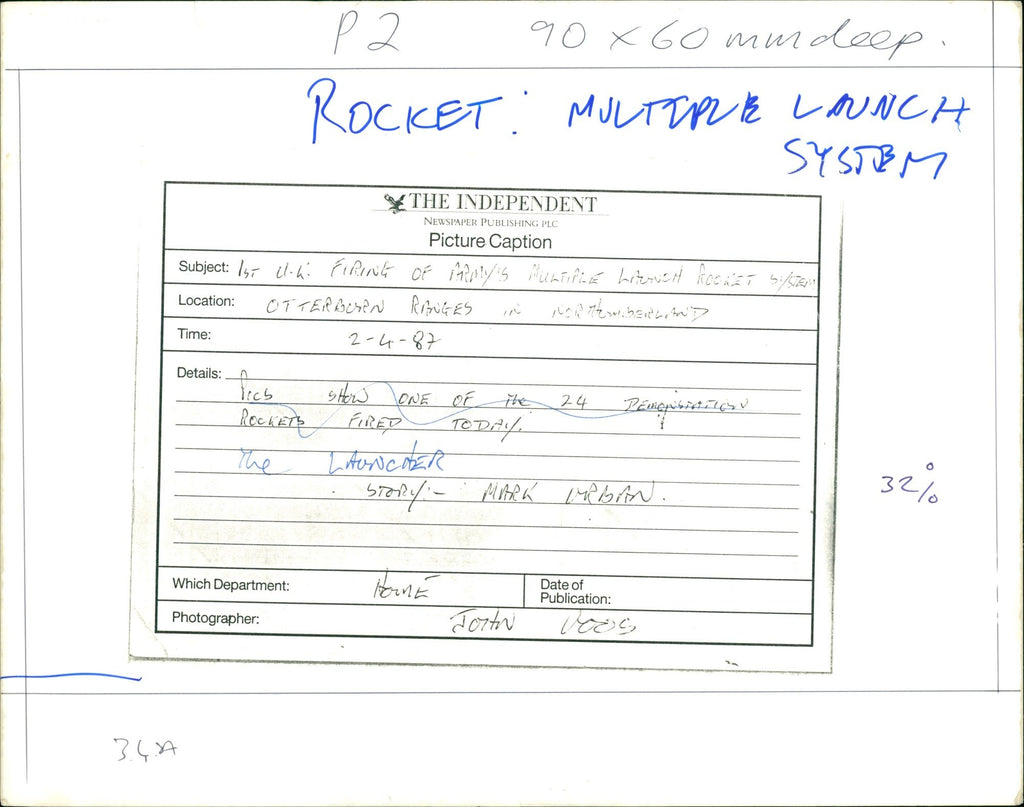 P2 90 x 60 mm deep.
ROCKET: MULTIPLE LAUNCH
SYSTEM
THE INDEPENDENT
NEWSPAPER PUBLISHING PLC
Picture Caption
Subject: 1ST U.K. FIRING OF ARMY'S MULTIPLE LAUNCH ROCKET SYSTEM
Location: OTTERBURN RANGES IN NORTHUMBERLAND
Time: 2-4-87
Details:
PICS SHOW ONE OF THE 24 DEMONSTRATION
ROCKETS FIRED TODAY.
The LAUNCHER
STORY:- MARK URBAN.
32%
Which Department: HOME
Date of
Publication:
Photographer: JOHN VOOS